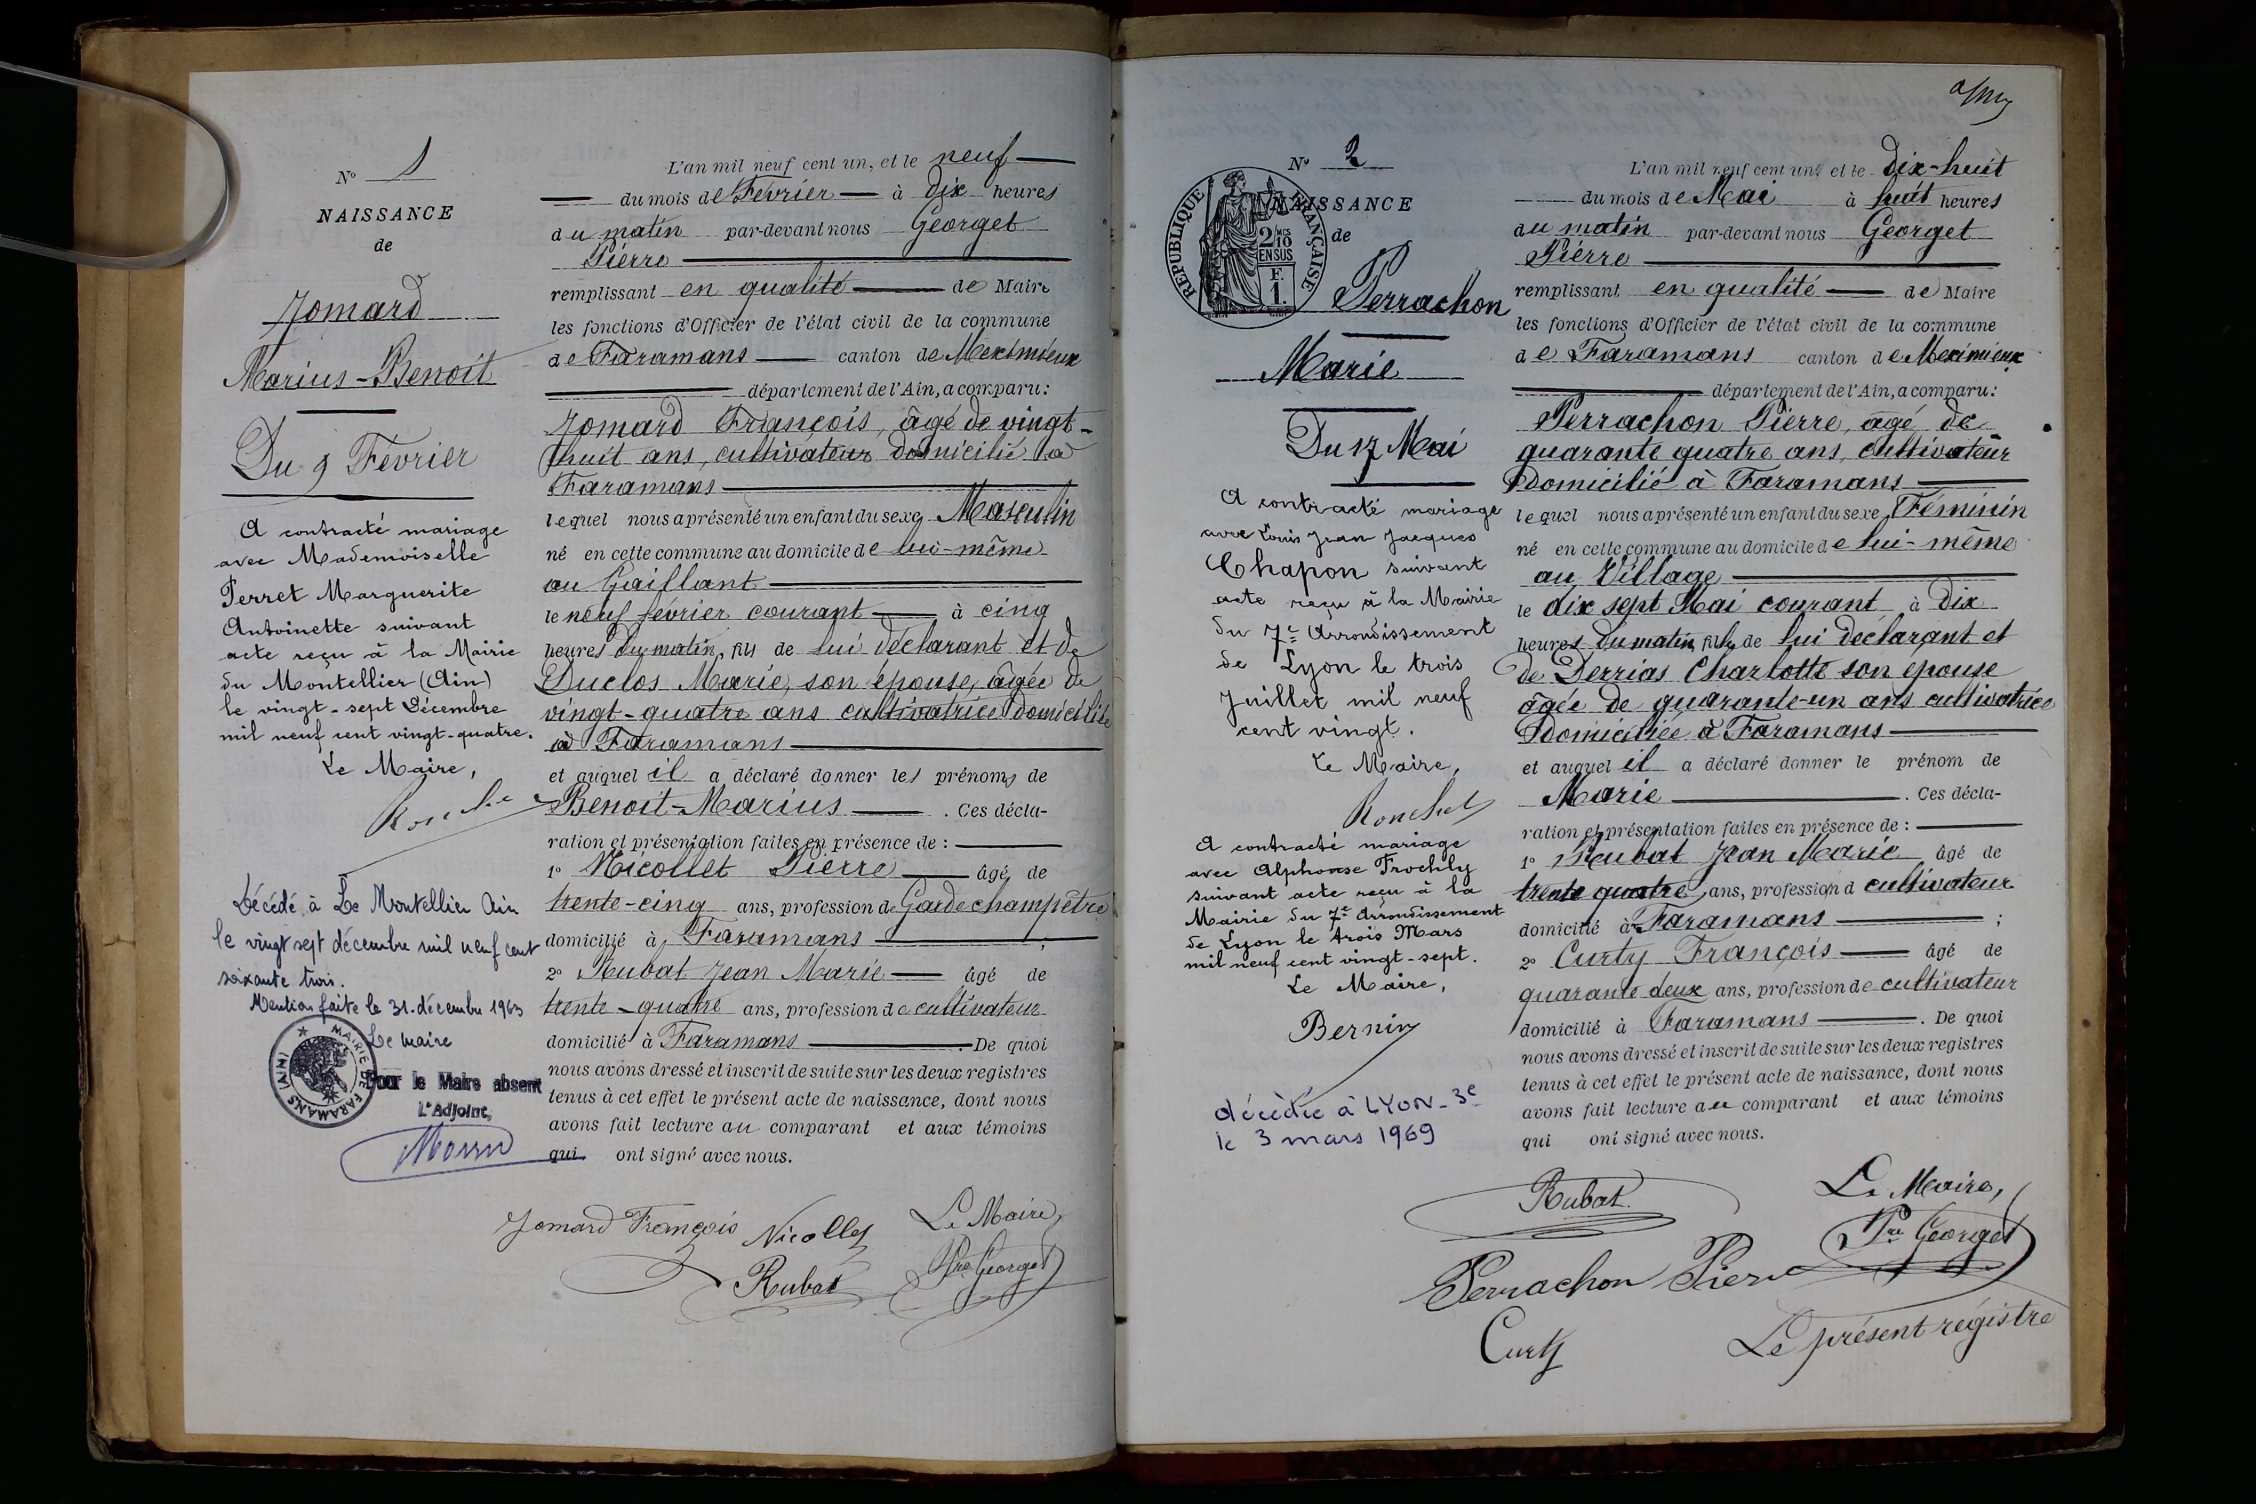 N° 1
NAISSANCE
de
Jomard
Marius-Benoit
Du 9 Février
A contracté mariage
avec Mademoiselle
Perret Marguerite
Antoinette suivant
acte reçu à la Mairie
du Montellier (Ain)
le vingt-sept Décembre
mil neuf cent vingt-quatre.
Le Maire,
Décédé à Le Montellier Ain
le vingt sept décembre mil neuf cent
soixante trois.
Mention faite le 31 décembre 1963
Le maire
MAIRIE DE FARAMANS (AIN)
Pour le Maire absent
L'Adjoint,
L'an mil neuf cent un, et le neuf
du mois de Février à dix heures
du matin par-devant nous Georget
Pierre
remplissant en qualité de Maire
les fonctions d'Officier de l'état civil de la commune
de Faramans canton de Meximieux
département de l'Ain, a comparu :
Jomard François, âgé de vingt-
huit ans, cultivateur domicilié à
Faramans
lequel nous a présenté un enfant du sexe Masculin
né en cette commune au domicile de lui-même
au Gaillant
le neuf février courant à cinq
heures du matin, fils de lui déclarant et de
Duclos Marie, son épouse, âgée de
vingt-quatre ans cultivatrice domiciliée
à Faramans
et auquel il a déclaré donner les prénoms de
Benoit-Marius . Ces décla-
ration et présentation faites en présence de :
1° Nicollet Pierre âgé de
trente-cinq ans, profession de Garde champêtre
domicilié à Faramans ;
2° Rubat Jean Marie âgé de
trente-quatre ans, profession de cultivateur
domicilié à Faramans . De quoi
nous avons dressé et inscrit de suite sur les deux registres
tenus à cet effet le présent acte de naissance, dont nous
avons fait lecture au comparant et aux témoins
qui ont signé avec nous.
Jomard François Nicollet Le Maire,
Rubat Pre Georget
N° 2
RÉPUBLIQUE FRANÇAISE
2/10 MES
EN SUS
F.
1.
NAISSANCE
de
Perrachon
Marie
Du 17 Mai
A contracté mariage
avec Louis Jean Jacques
Chapon suivant
acte reçu à la Mairie
du 7e Arrondissement
de Lyon le trois
Juillet mil neuf
cent vingt.
Le Maire,
A contracté mariage
avec Alphonse Frochly
suivant acte reçu à la
Mairie du 7e Arrondissement
de Lyon le trois Mars
mil neuf cent vingt-sept.
Le Maire,
Bernin
décédée à LYON-3e
le 3 mars 1969
L'an mil neuf cent un, et le dix-huit
du mois de Mai à huit heures
du matin par-devant nous Georget
Pierre
remplissant en qualité de Maire
les fonctions d'Officier de l'état civil de la commune
de Faramans canton de Meximieux
département de l'Ain, a comparu :
Perrachon Pierre, âgé de
quarante quatre ans, cultivateur
domicilié à Faramans
lequel nous a présenté un enfant du sexe Féminin
né en cette commune au domicile de lui-même
au Village
le dix sept Mai courant à dix
heures du matin, fille de lui déclarant et
de Derrias Charlotte son épouse
âgée de quarante-un ans cultivatrice
domiciliée à Faramans
et auquel il a déclaré donner le prénom de
Marie . Ces décla-
ration et présentation faites en présence de :
1° Rubat Jean Marie âgé de
trente quatre ans, profession d cultivateur
domicilié à Faramans ;
2° Curty François âgé de
quarante deux ans, profession de cultivateur
domicilié à Faramans . De quoi
nous avons dressé et inscrit de suite sur les deux registres
tenus à cet effet le présent acte de naissance, dont nous
avons fait lecture au comparant et aux témoins
qui ont signé avec nous.
Rubat Le Maire,
Pre Georget
Perrachon Pierre
Curty Le présent régistre